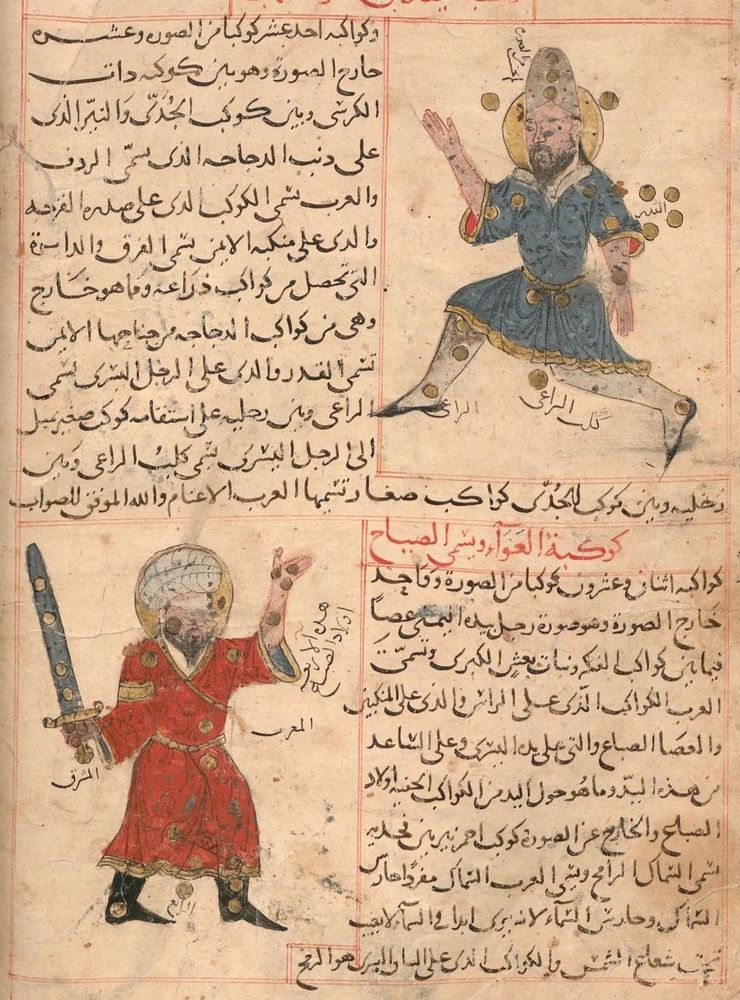 وكواكبه احد عشر كوكبا من الصورة وعشره
خارج الصورة وهو بين كوكبه ذات
الكرسي وبين كوكب الجُدَيّ والنيّر الذى
على ذنب الدجاجه الذى يسمّى الردف
والعرب تسمى الكوكب الذى على صدره القرحه
والذى على منكبه الايمن يسمى الفرق والدائرة
التى تحصل من كواكب ذراعه وما هو خارج
وهى من كواكب الدجاجه من جناحها الايمن
تسمى القدر والذى على الرجل اليسرى يسمى
الراعى وبين رجليه على استقامه كوكب صغير يميل
الى الرجل اليسرى يسمى كلب الراعى وبين
رجليه وبين كوكب الجُدَىّ كواكب صغار تسميها العرب الاغنام والله الموفق للصواب
الراعى
كلب الراعى
كوكبة العَوّآء ويسمى الصياح
كواكبه اثنان وعشرون كوكبا من الصورة وواحد
خارج الصورة وهو صورة رجل بيده اليمنى عصًا
فيما بين كواكب الفكه وبنات نعش الكبرى وتسمّى
العرب الكواكب الذى على الراس والذى على المنكبين
والعصا الضباع والتى على يده اليسرى وعلى الساعد
من هذه اليد وما هو حول اليد من الكواكب الخفيه اولاد
الضباع والخارج عن الصورة كوكب احمر نيّر بين فخذيه
يسمى السماك الرامح ويسمى العرب السماك مفردًا حارس
السماك وحارس السماء لانه يرى ابدا فى السماء لا يغيب
تحت شعاع الشمس والكوكب الذى على الساق اليسرى هو الرمح
هذه الاربعه
اولاد الضباع
المغرب
المشرق